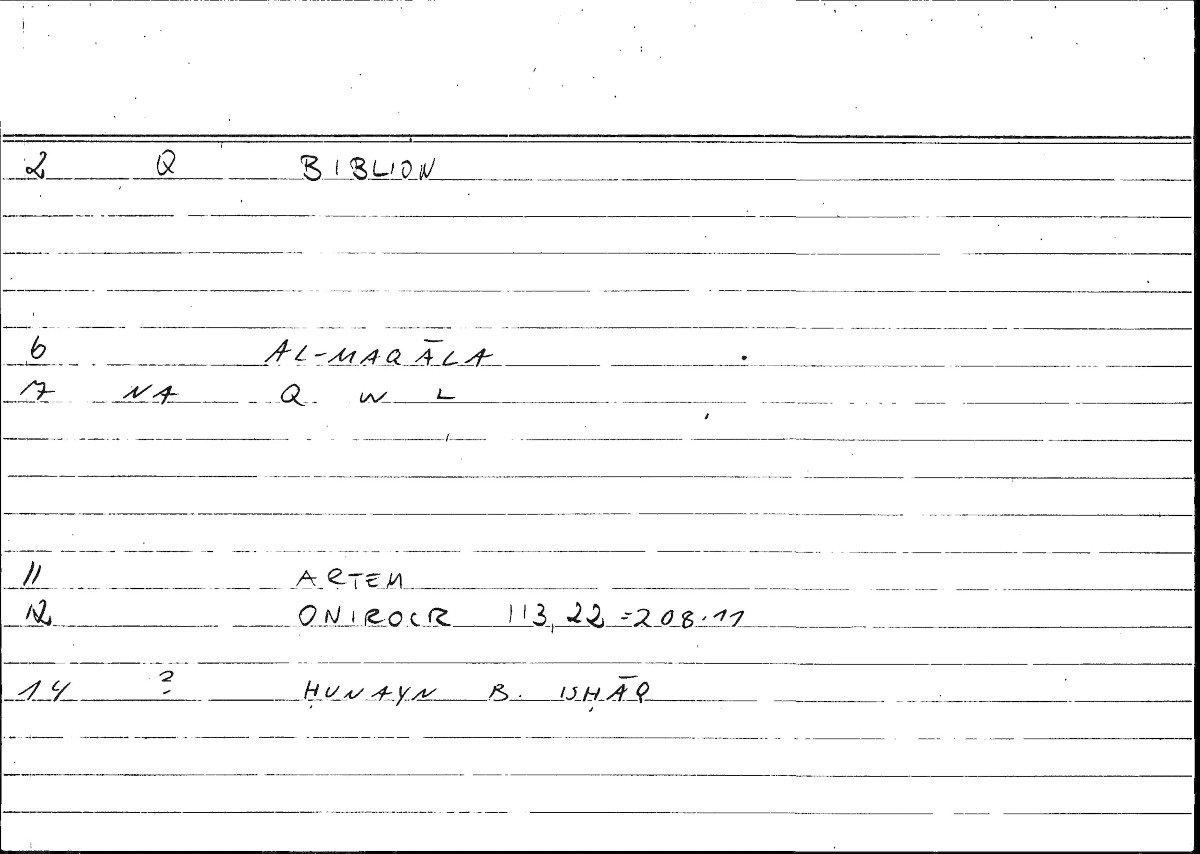 2 Q BIBLION
6 AL-MAQĀLA
7 NA Q W L
11 ARTEM
12 ONIROCR 113,22=208.11
14 ? ḤUNAYN B. ISḤĀQ